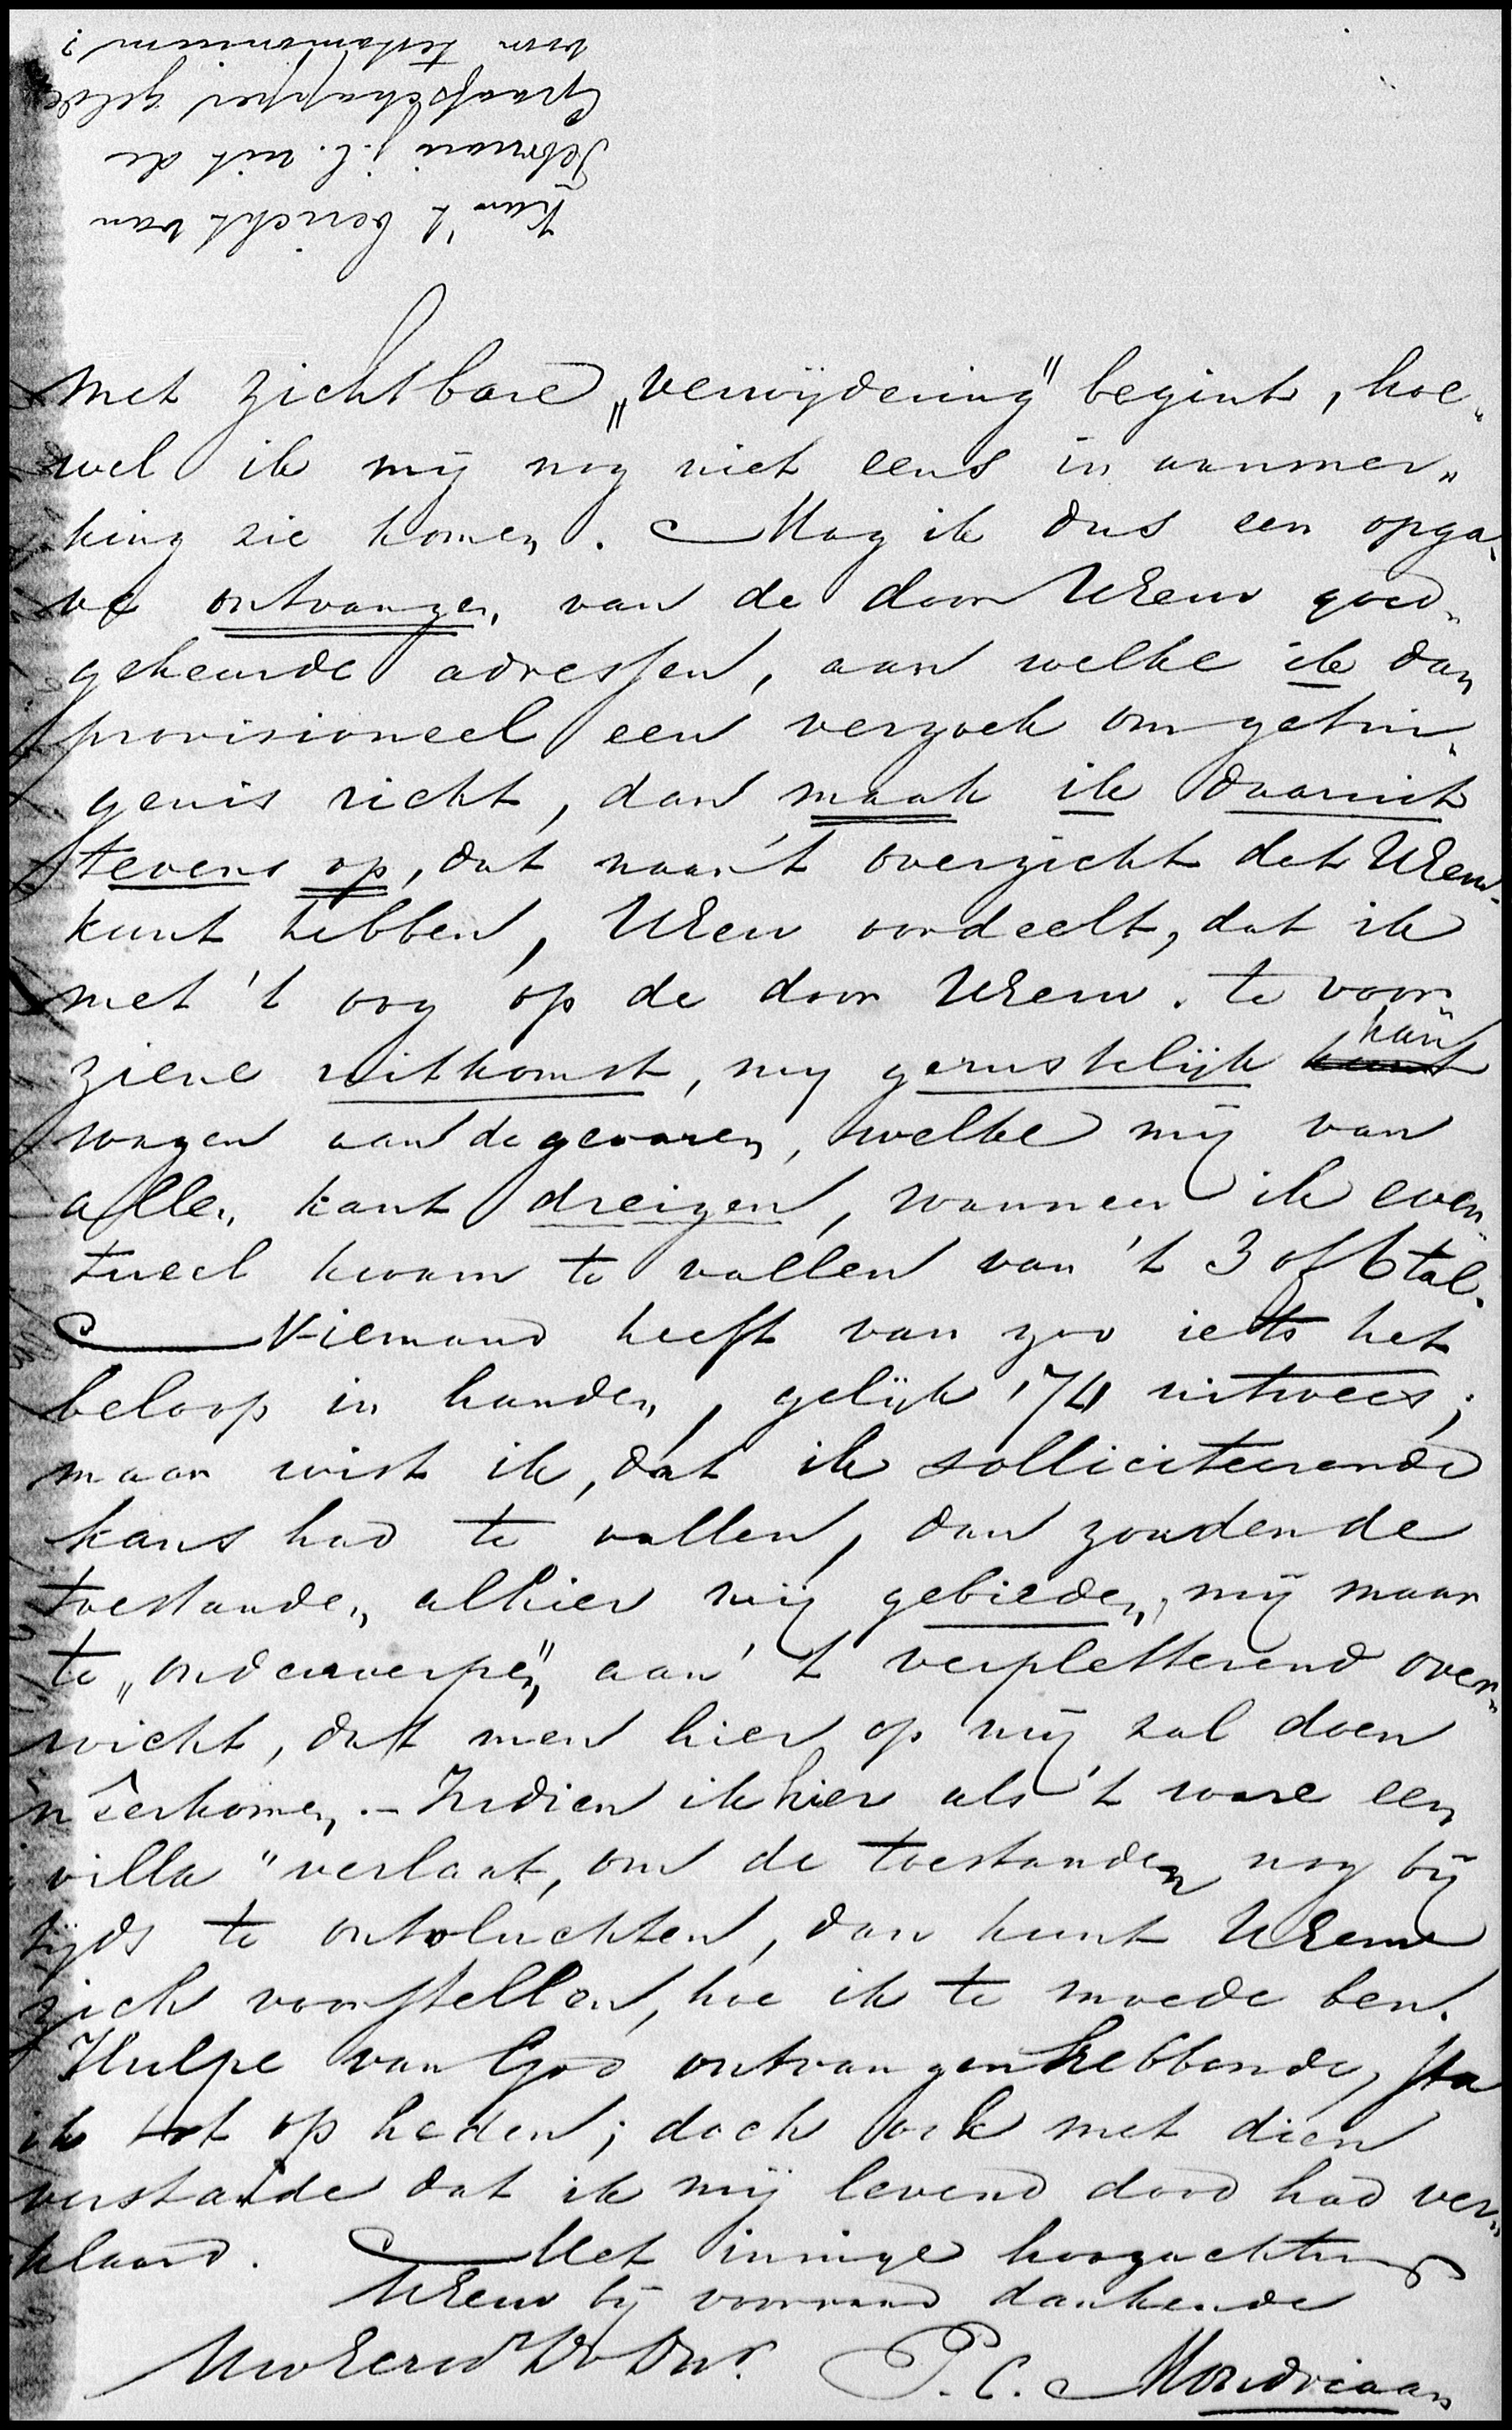 Kan 't bericht van
Februari j.l. uit de
Graafschapper gelde
voor testamonium?
met zichtbare „verwijdering" begint, hoe„
wel ik mij nog niet eens in aanmer„
king zie komen. Mag ik dus een opga„
ve ontvangen van de door UEerw goed„
gekeurde adressen, aan welke ik dan
provisioneel een verzoek om getui„
genis richt, dan maak ik daaruit
tevens op, dat naar 't overzicht dat UEerw.
kunt hebben, UEerw oordeelt, dat ik
met 't oog op de door UEerw. te voor„
ziene uitkomst, mij gerustelijk kan
wagen aan de gevaren, welke mij van
allen kant dreigen, wanneer ik even„
tueel kwam te vallen van 't 3 of 6 tal.
Niemand heeft van zoo iets het
beloop in handen, gelijk '74 uitwees;
maar wist ik, dat ik solliciteerende
kans had te vallen, dan zouden de
toestanden alhier mij gebieden, mij maar
te „onderwerpen" aan 't verpletterend over„
wicht, dat men hier op mij zal doen
neêrkomen. – Indien ik hier als 't ware een
villa" verlaat, om de toestanden nog bij
tijds te ontvluchten, dan kunt UEerw
zich voorstellen, hoe ik te moede ben.
Hulpe van God ontvangen hebbende, sta
ik tot op heden; doch ook met dien
verstande dat ik mij levend dood had ver„
klaard. Met innige hoogachting
UEerw bij voorraad dankende
UwEerw Dw Dnr. P. C. Mondriaan